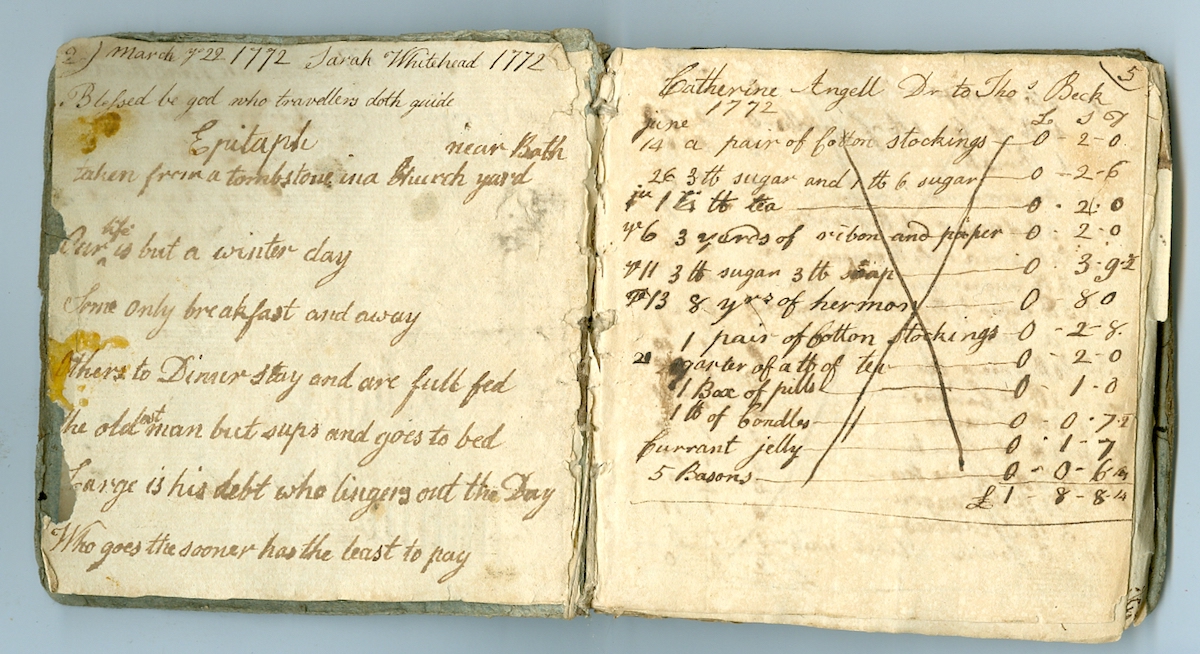 2) March ye 22 1772 Sarah Whitehead 1772
Blessed be god who travellers doth guide
Epitaph near Bath
taken from a tombstone in a Church yard
Our life is but a winter day
Some only breakfast and away
Others to Dinner stay and are full fed
the oldest man but sups and goes to bed
Large is his debt who lingers out the Day
Who goes the sooner has the least to pay
5
Catherine Angell Dr to Thos Beck
1772 £ s d
june
14 a pair of Cotton stockings 0-2-0
26 3 lb sugar and 1 lb 6 sugar 0-2-6
1 lb tea 0-2-0
ye 6 3 yards of ribon and paper 0-2-0
ye 11 3 lb sugar 3 lb soap 0-3-9-2
13 8 yrs of hermon 0 80
1 pair of Cotton stockings 0-2-8
21 qarter of a lb of tea 0-2-0
1 Box of pills 0 1-0
1 lb of Condles 0 0-7-2
Currant jelly 0-1-7
5 Basons 0-0-6
£1-8-8-4